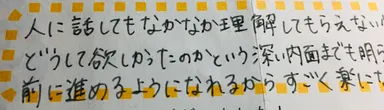 人に話してもなかなか理解してもらえない
どうして欲しかったのかという深い内面までも明
前に進めるようになれるからすごく楽に